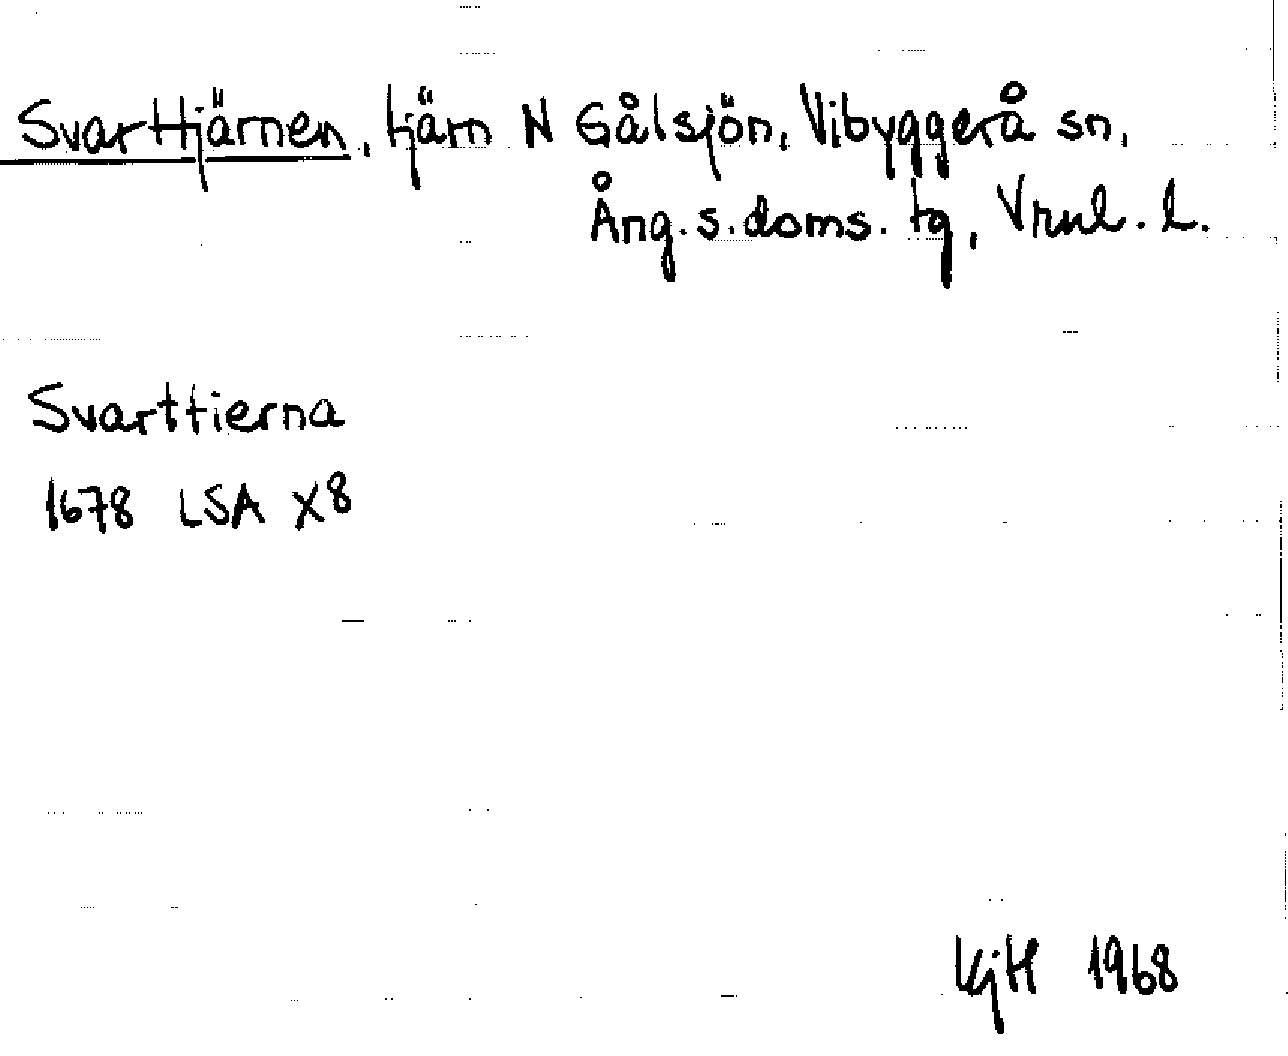 Svarttjärnen, tjärn N Gålsjön, Vibyggerå sn,
Ång. s. doms. tg, Vrnl. l.
Svarttierna
1678 LSA X8
KjH 1968